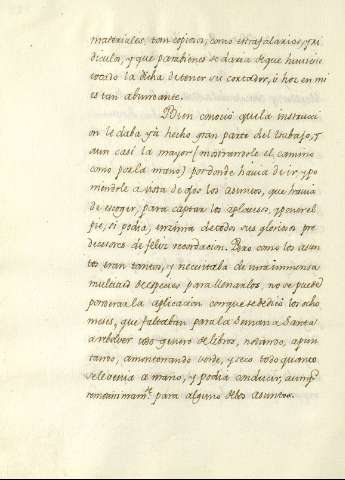 materiales, tan copiosos, como estrafalarios, y ri
diculos, y que parabienes se daria de que huviesse
tocado la dicha de tener su cortador, ú hoz en mi
es tan abundante.
Bien conoció qe. la instruccion
le daba yà hecho gran parte del trabajo, y
aun casi la mayor (mostrarle el camino
como por la mano) por donde havia de ir, y po
niendole a vista de ojos los asuntos, que havia
de escoger, para captar los aplausos, y poner el
pie, si podia, encima de todos sus gloriosos pre
decesores de feliz recordacion. Pero como los asun
tos eran tantos, y necesitaba de una inmensa
multitud de especies, para llenarlos, no se puede
ponderar la aplicacion con que se dedicó los ocho
meses, que faltaban para la Semana Santa
a rebolver todo genero de libros, notando, apun
tando, amontonando verde, y seco todo quanto
se le venia a mano, y podia conducir, aunqe.
remotissimamte. para alguno de los asuntos.